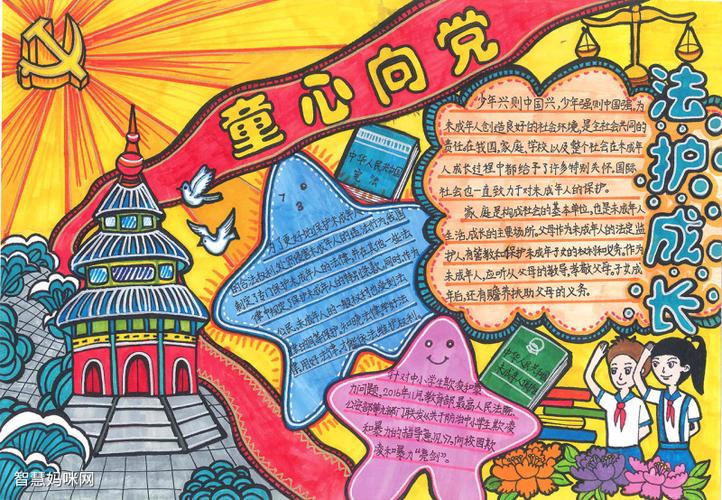 童心向党
法护成长
少年兴则中国兴，少年强则中国强。为
未成年人创造良好的社会环境，是全社会共同的
责任。在我国，家庭、学校以及整个社会在未成年
人成长过程中都给予了许多特别关怀。国际
社会也一直致力于对未成年人的保护。
家庭是构成社会的基本单位，也是未成年人
生活、成长的主要场所。父母作为未成年人的法定监
护人，有管教和保护未成年子女的权利和义务。作为
未成年人，应听从父母的教导，孝敬父母。子女成
年后，还有赡养扶助父母的义务。
中华人民共和国
宪法
为了更好地保护未成年
的合法权益，
制定了专门保护未成年人的法律，并在其他一些法
律中规定了保护未成年人的特别条款。同时，作为
公民，未成年人的一般权利也受制法
中华人民共和国
未成年人保护法
针对中小学生欺凌和暴
力问题，2016年11月，教育部、最高人民法院、
公安部等九部门联发《关于防治中小学生欺凌
和暴力的指导意见》，向校园欺
凌和暴力“亮剑”。
智慧妈咪网